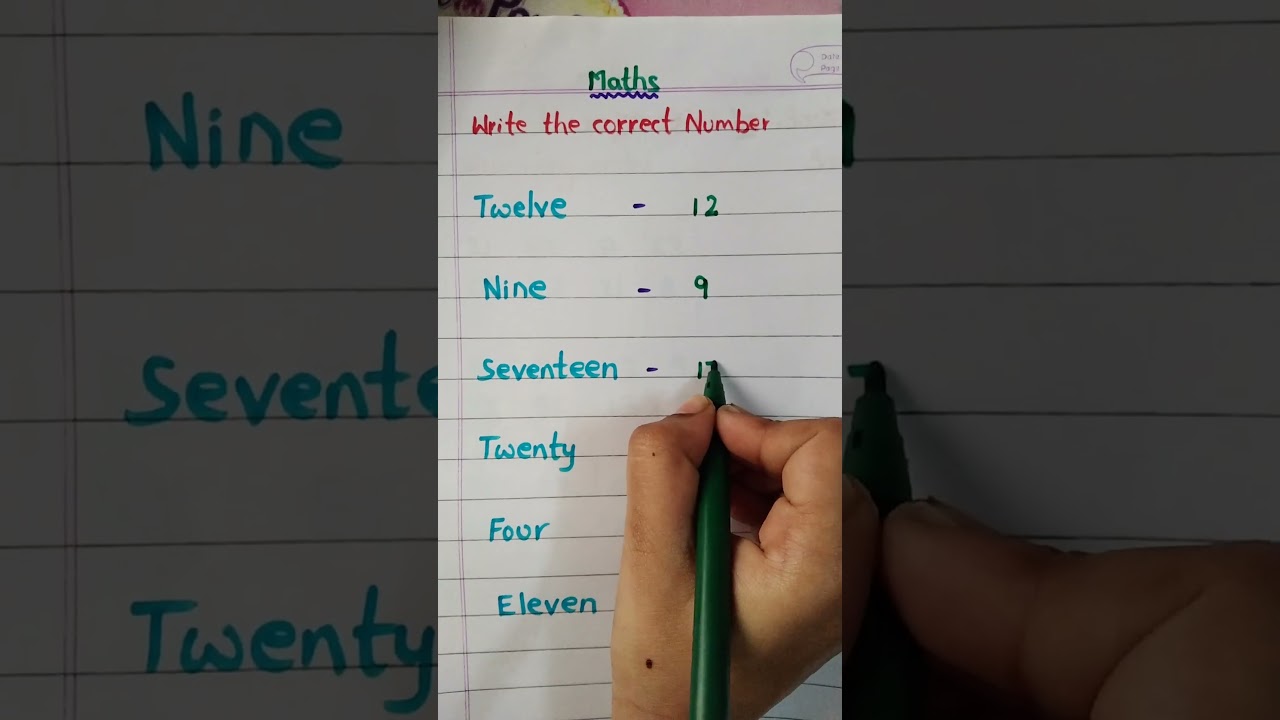 Date
Page
Maths
Write the correct Number
Twelve - 12
Nine - 9
Seventeen - 17
Twenty
Four
Eleven
Nine
Twenty